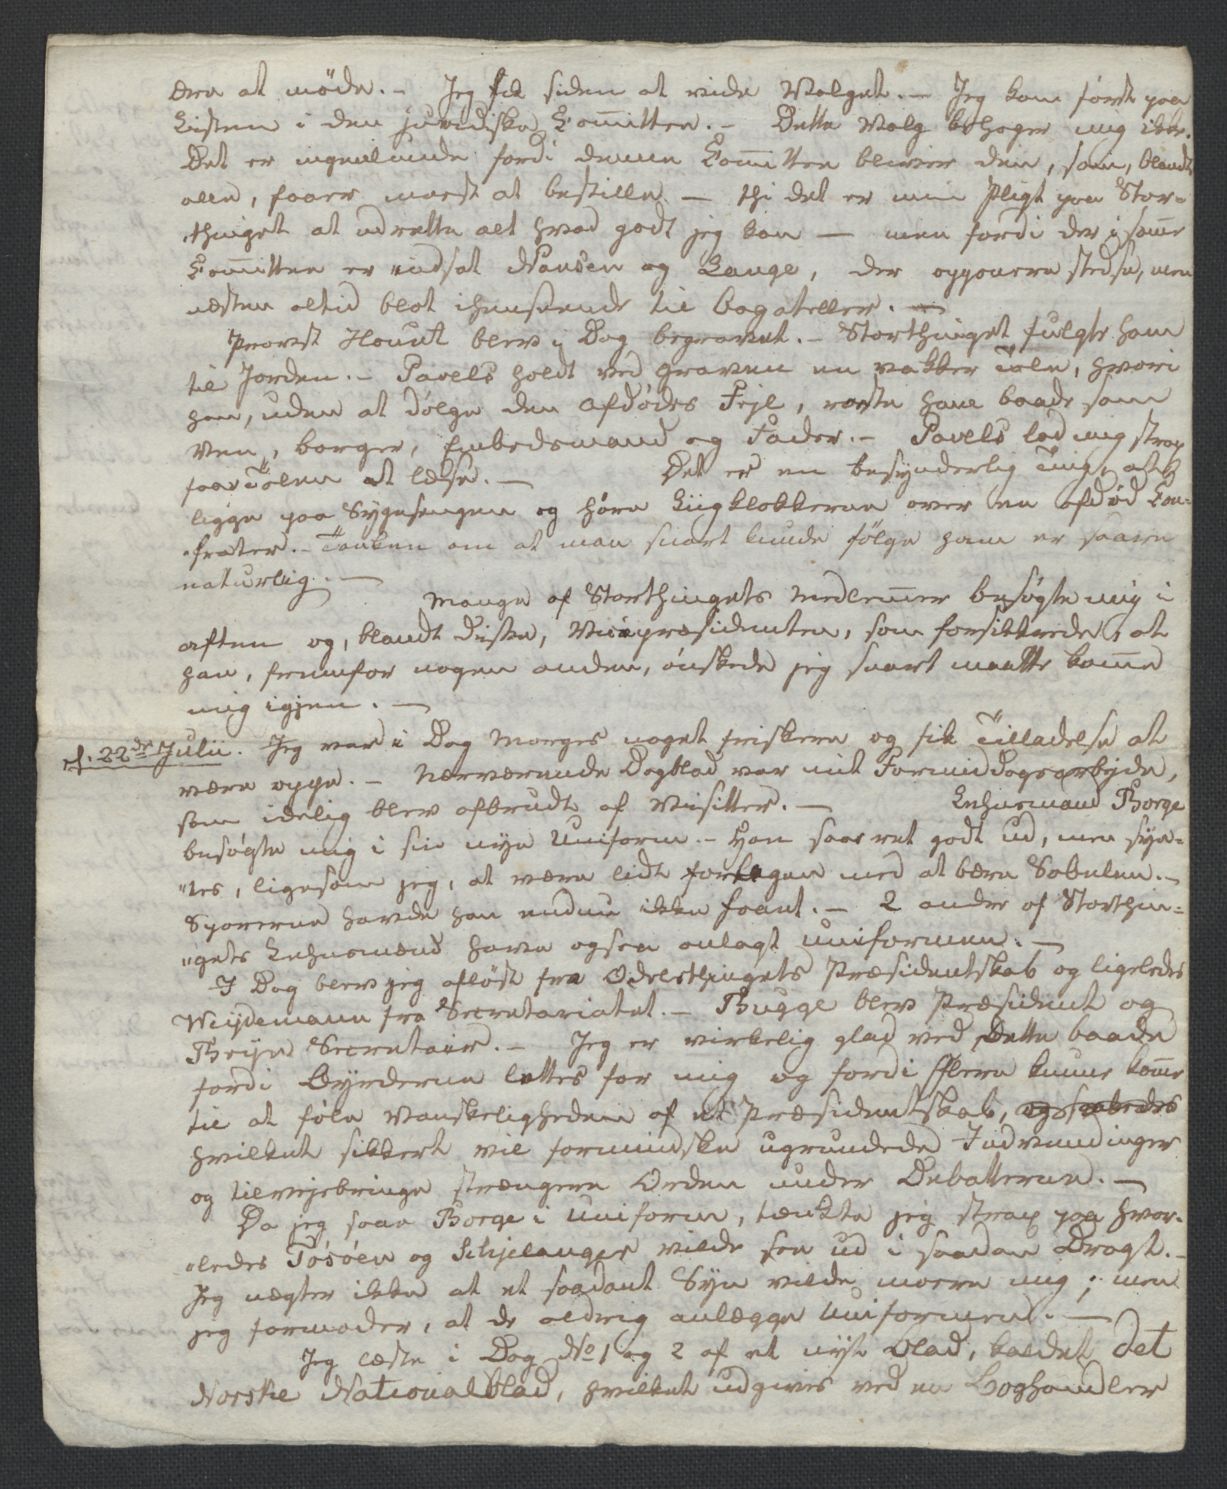 dem at møde. – Jeg fik siden at vide Valget. – Jeg kom først paa
Listen i den juridiske Com̄ittee. – Dette Valg behager mig ikke.
Det er ingenlunde fordi denne Com̄ittee bliver den, som, blandt
alle, faaer meest at bestille – thi det er min Pligt paa Stor-
thinget at udrette alt hvad godt jeg kan – men fordi der i sam̄e
Com̄ittee er indsat Nansen og Lange, der opponere stedse, men
næsten altid blot i henseende til bagateller. –
Provst Hount blev i Dag begravet. – Storthinget fulgte ham
til Jorden. – Pavels holdt ved Graven en vakker Tale, hvori
han, uden at dølge den Afdødes Feil, roste ham baade som
Ven, borger, Embedsmand og Fader. – Pavels lod mig strax
faae Talen at læse. – Det er en besynderlig Ting, at
ligge paa Sygesengen og høre Liigklokkerne over en afdød Con-
frater. – Tanken om at man snart kunde følge ham er saare
naturlig. –
Mange af Storthingets Medlem̄er besøgte mig i
aften og, blandt disse, Vicepræsidenten, som forsikkrede, at
han, fremfor nogen anden, ønskede jeg snart maatte kom̄e
mig igjen. –
d. 22de Julii. Jeg var i Dag Morges noget friskere og fik Tilladelse at
være oppe. – Nærværende Dagblad var mit Formiddagsarbejde,
som idelig blev afbrudt af Visitter. – Lehnsmand Borge
besøgte mig i sin nye Uniform. – Han saae ret godt ud, men syn-
tes, ligesom jeg, at være lidt forlegen med at bære Sabelen. –
Sporerne havde han endnu ikke faaet. – 2 andre af Storthin-
gets Lehnsmænd have ogsaa anlagt Uniformen. –
I Dag blev jeg afløst fra Odelsthingets Præsidentskab og ligeledes
Weydemann fra Secretariatet. – Bugge blev Præsident og
Breyn Secretair. – Jeg er virkelig glad ved Dette baade
fordi Byrderne lettes for mig og fordi flere kunne kom̄e
til at føle Vanskelighederne af et Præsidentskab,
hvilket sikkert vil formindske ugrundede Indvendinger
og tilvejebringe strængere Orden under Debatterne. –
Da jeg saae Borge i Uniform, tænkte jeg strax paa hvor-
ledes Tøsøen og Schjelanger vilde see ud i saadan Dragt. –
Jeg nægter ikke at et saadant Syn vilde more mig; men
jeg formoder, at de aldrig anlægge Uniformen. –
Jeg læste i Dag No 1 og 2 af et nyt Blad, kaldet det
Norske Nationalblad, hvilket udgives ved en Boghandler